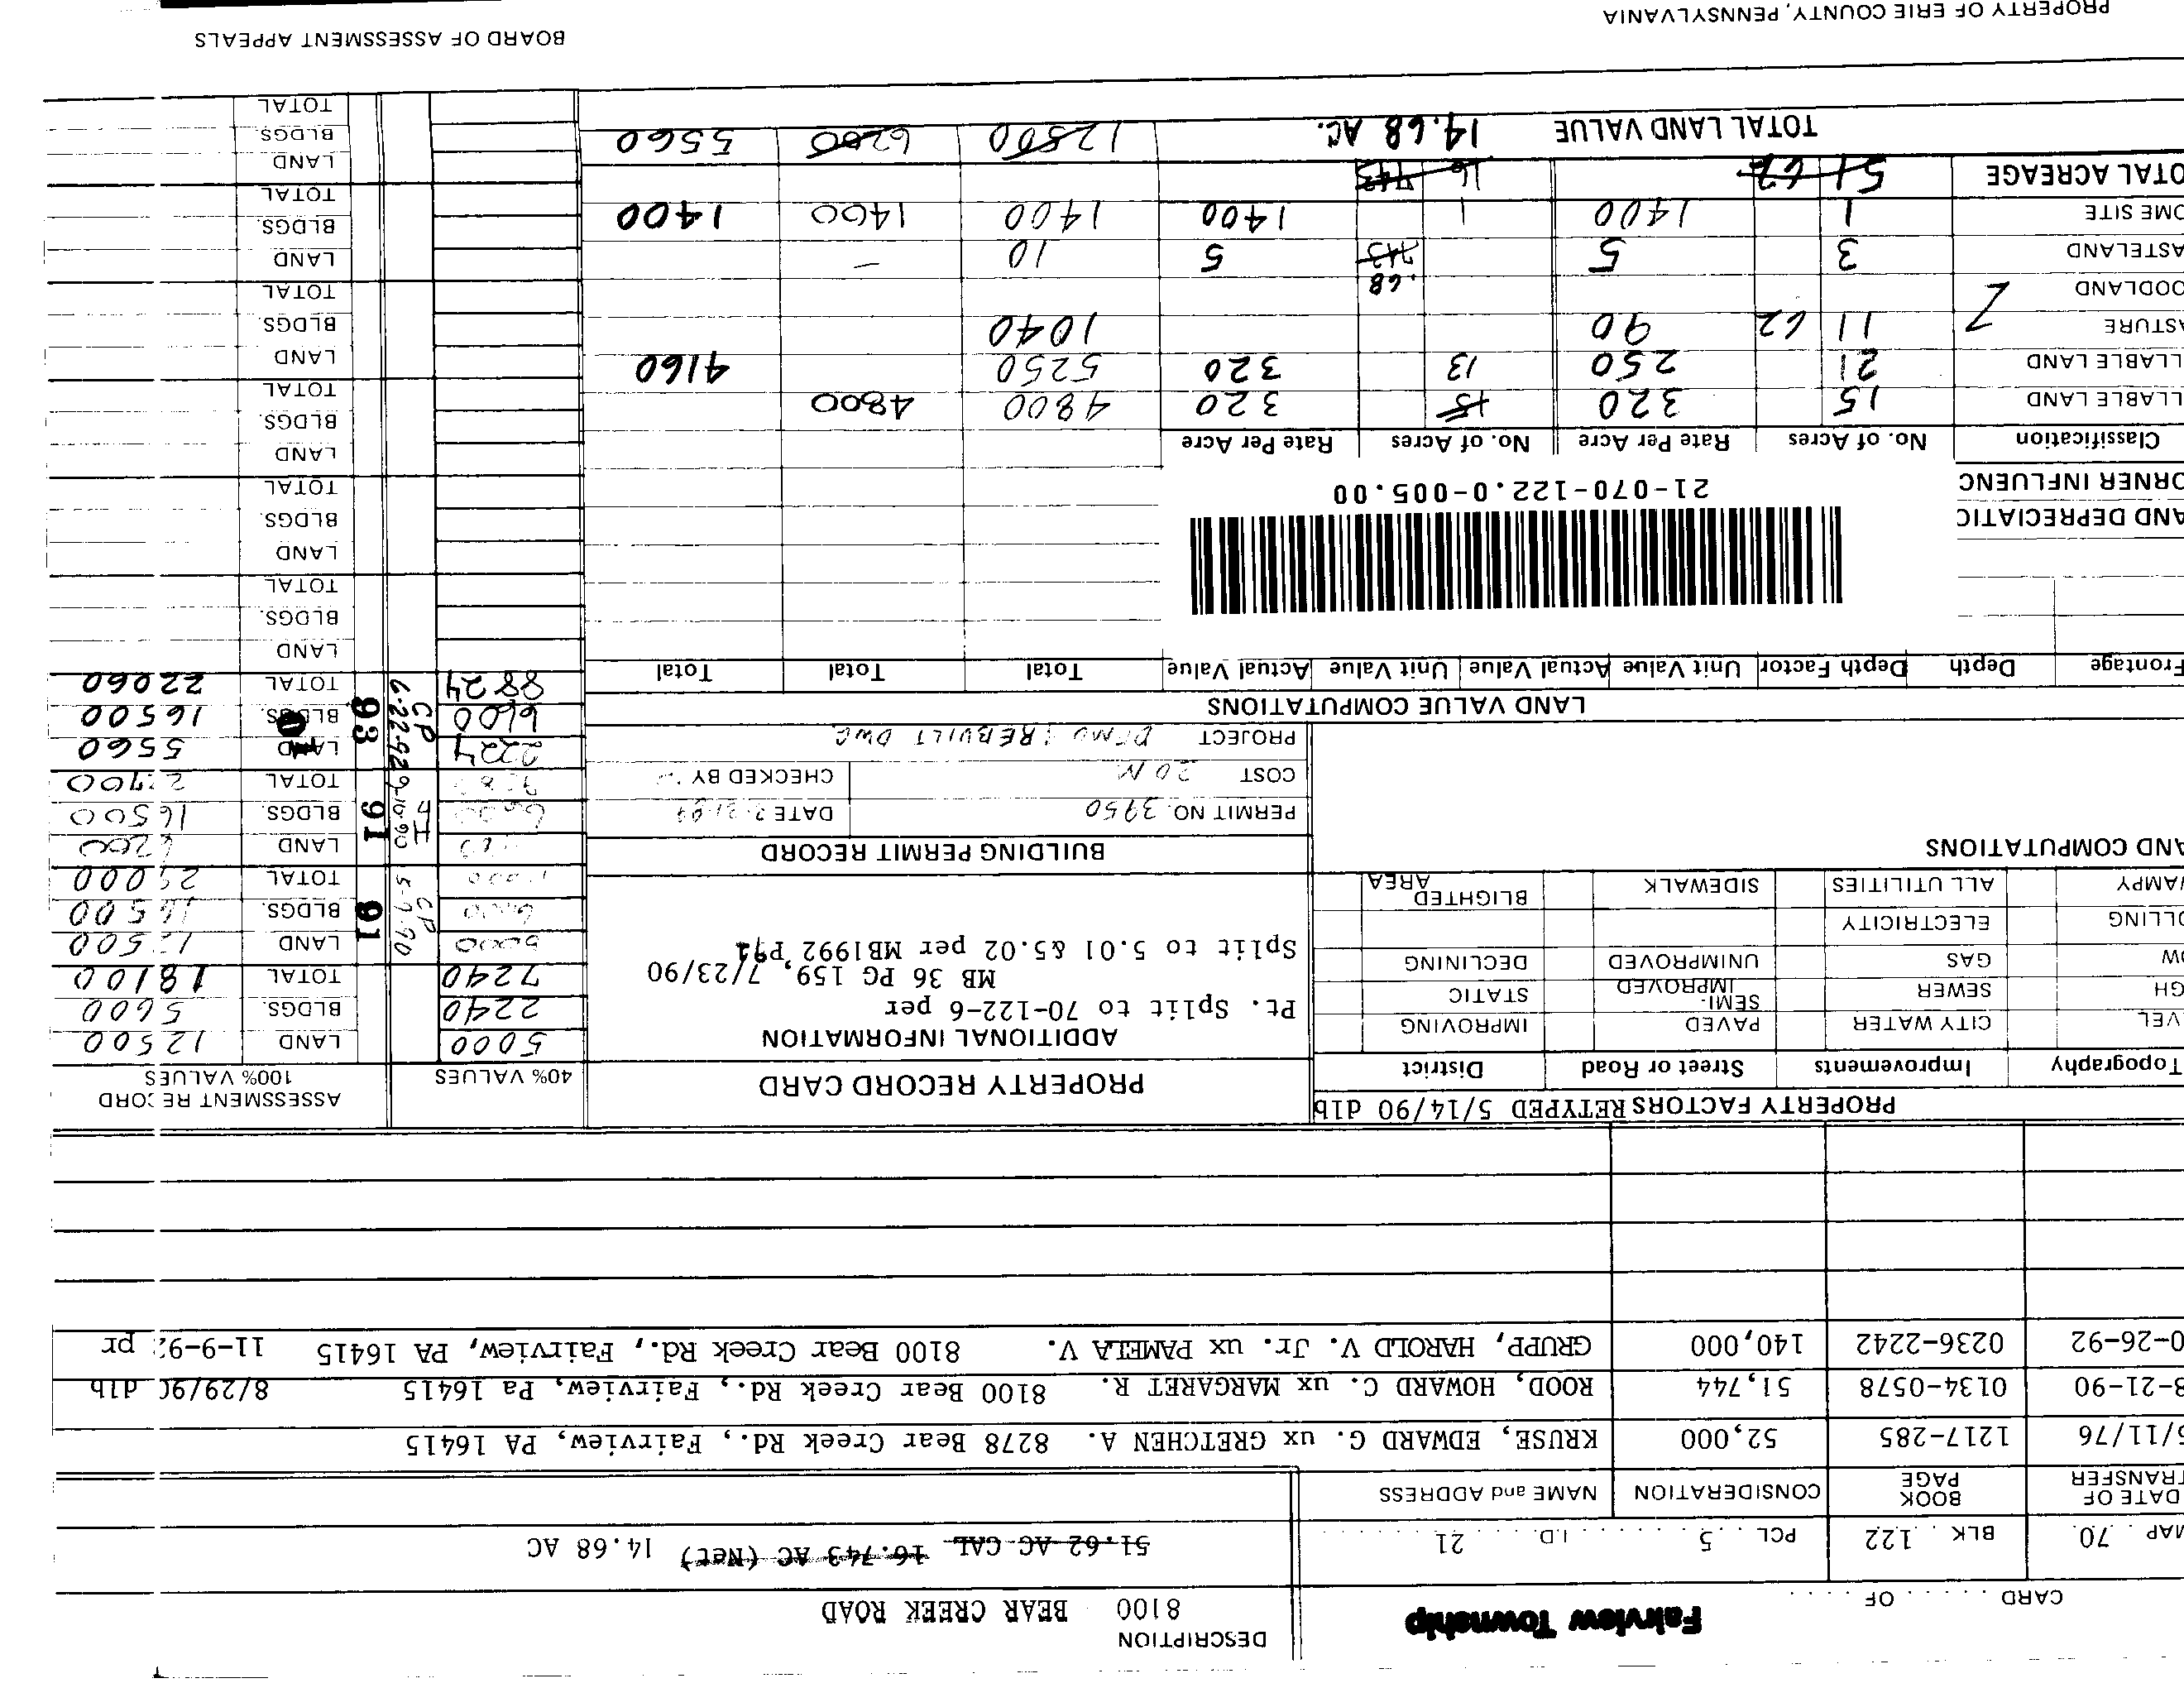 Fairview Township
DESCRIPTION
CARD . . . . . OF . . . .
8100 BEAR CREEK ROAD
MAP . 70. BLK . . 122 PCL . . . 5 . . . . . . . . I.D. . . . . 21 . . . . . .
51.62 AC CAL 16.743 AC (Net) 14.68 AC
DATE OF TRANSFER BOOK PAGE CONSIDERATION NAME and ADDRESS
5/11/76 1217-285 52,000 KRUSE, EDWARD G. ux GRETCHEN A. 8278 Bear Creek Rd., Fairview, PA 16415
8-21-90 0134-0578 51,744 ROOD, HOWARD C. ux MARGARET R. 8100 Bear Creek Rd., Fairview, Pa 16415 8/29/90 dlb
0-26-92 0236-2242 140,000 GRUPP, HAROLD V. Jr. ux PAMELA V. 8100 Bear Creek Rd., Fairview, PA 16415 11-9-92 pr
PROPERTY FACTORS RETYPED 5/14/90 dlb
Topography Improvements Street or Road District
VEL CITY WATER PAVED IMPROVING
GH SEWER SEMI-IMPROVED STATIC
OW GAS UNIMPROVED DECLINING
OLLING ELECTRICITY
WAMPY ALL UTILITIES SIDEWALK BLIGHTED AREA
AND COMPUTATIONS
PROPERTY RECORD CARD
ADDITIONAL INFORMATION
Pt. Split to 70-122-6 per
MB 36 PG 159, 7/23/90
Split to 5.01 &5.02 per MB1992 P91
BUILDING PERMIT RECORD
PERMIT NO. 3950 DATE
COST 20 M CHECKED BY
PROJECT DEMO & REBUILT DWG
40% VALUES
ASSESSMENT RECORD
100% VALUES
5000 LAND 12500
2240 BLDGS. 5600
7240 TOTAL 18100
5000 CP 5-9-90 91 LAND 12500
6600 BLDGS. 16500
TOTAL 29000
JH 9-10-90 91 LAND 6200
6600 BLDGS. 16500
TOTAL 22700
2224 CP 6-22-92 93 LAND 5560
6600 BLDGS. 16500
8824 TOTAL 22060
LAND
BLDGS.
TOTAL
LAND
BLDGS.
TOTAL
LAND
BLDGS.
TOTAL
LAND
BLDGS.
TOTAL
LAND
BLDGS.
TOTAL
LAND
BLDGS.
TOTAL
LAND VALUE COMPUTATIONS
Frontage Depth Depth Factor Unit Value Actual Value Unit Value Actual Value Total Total Total
AND DEPRECIATIO
ORNER INFLUENC
21-070-122.0-005.00
Classification No. of Acres Rate Per Acre No. of Acres Rate Per Acre
LLABLE LAND 15 320 15 320 4800 4800
LLABLE LAND 21 250 13 320 5250 4160
ASTURE 11 62 90 1040
OODLAND
.68
ASTELAND 3 5 743 5 10 –
OME SITE 1 1400 1 1400 1400 1400 1400
OTAL ACREAGE 51 62 16 743
TOTAL LAND VALUE 14.68 AC. 12500 6200 5560
PROPERTY OF ERIE COUNTY, PENNSYLVANIA
BOARD OF ASSESSMENT APPEALS